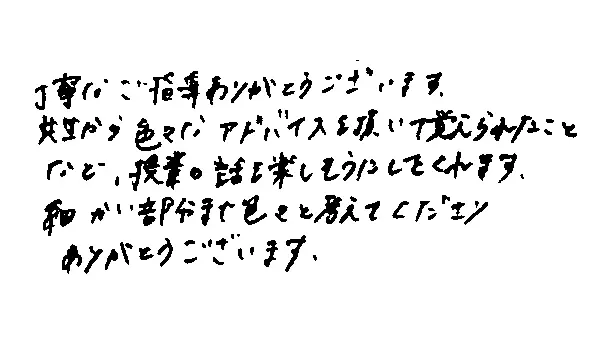 丁寧なご指導ありがとうございます。
先生から色々なアドバイスを頂いて覚えられたこと
など、授業の話を楽しそうにしてくれます。
細かい部分まで色々と考えてくださり
ありがとうございます。